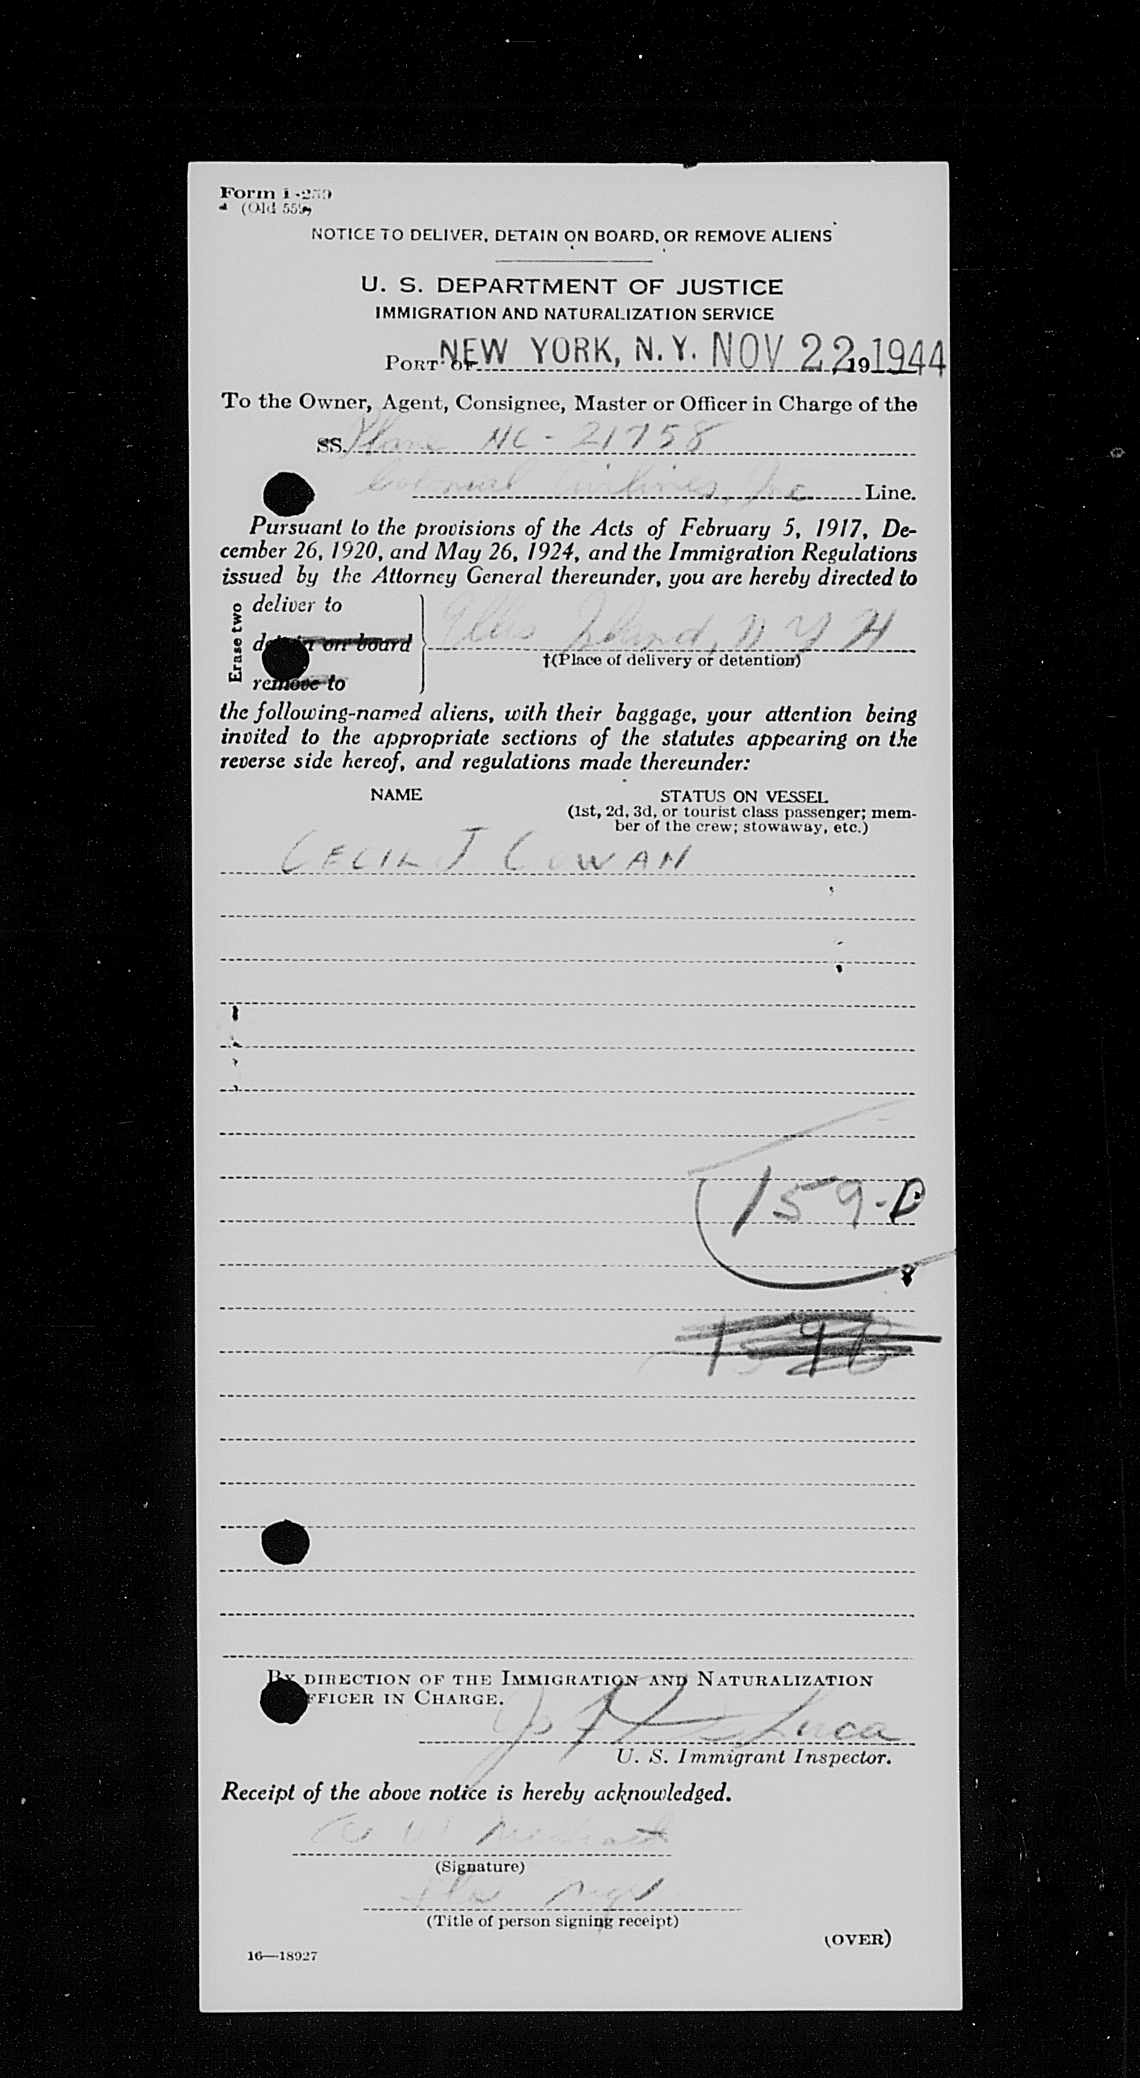 Form I-259
(Old 559)
NOTICE TO DELIVER, DETAIN ON BOARD, OR REMOVE ALIENS
U. S. DEPARTMENT OF JUSTICE
IMMIGRATION AND NATURALIZATION SERVICE
PORT OF NEW YORK, N.Y. NOV 22, 19 1944
To the Owner, Agent, Consignee, Master or Officer in Charge of the
SS. Plane NC-21758
Colonial Airlines, Inc Line.
Pursuant to the provisions of the Acts of February 5, 1917, De-
cember 26, 1920, and May 26, 1924, and the Immigration Regulations
issued by the Attorney General thereunder, you are hereby directed to
Erase two
deliver to
detain on board
remove to
Ellis Island, N Y H
†(Place of delivery or detention)
the following-named aliens, with their baggage, your attention being
invited to the appropriate sections of the statutes appearing on the
reverse side hereof, and regulations made thereunder:
NAME STATUS ON VESSEL
(1st, 2d, 3d, or tourist class passenger; mem-
ber of the crew; stowaway, etc.)
CECIL J COWAN
159-D
BY DIRECTION OF THE IMMIGRATION AND NATURALIZATION
OFFICER IN CHARGE.
Luca
U. S. Immigrant Inspector.
Receipt of the above notice is hereby acknowledged.
(Signature)
Mgr
(Title of person signing receipt)
(OVER)
16—18927